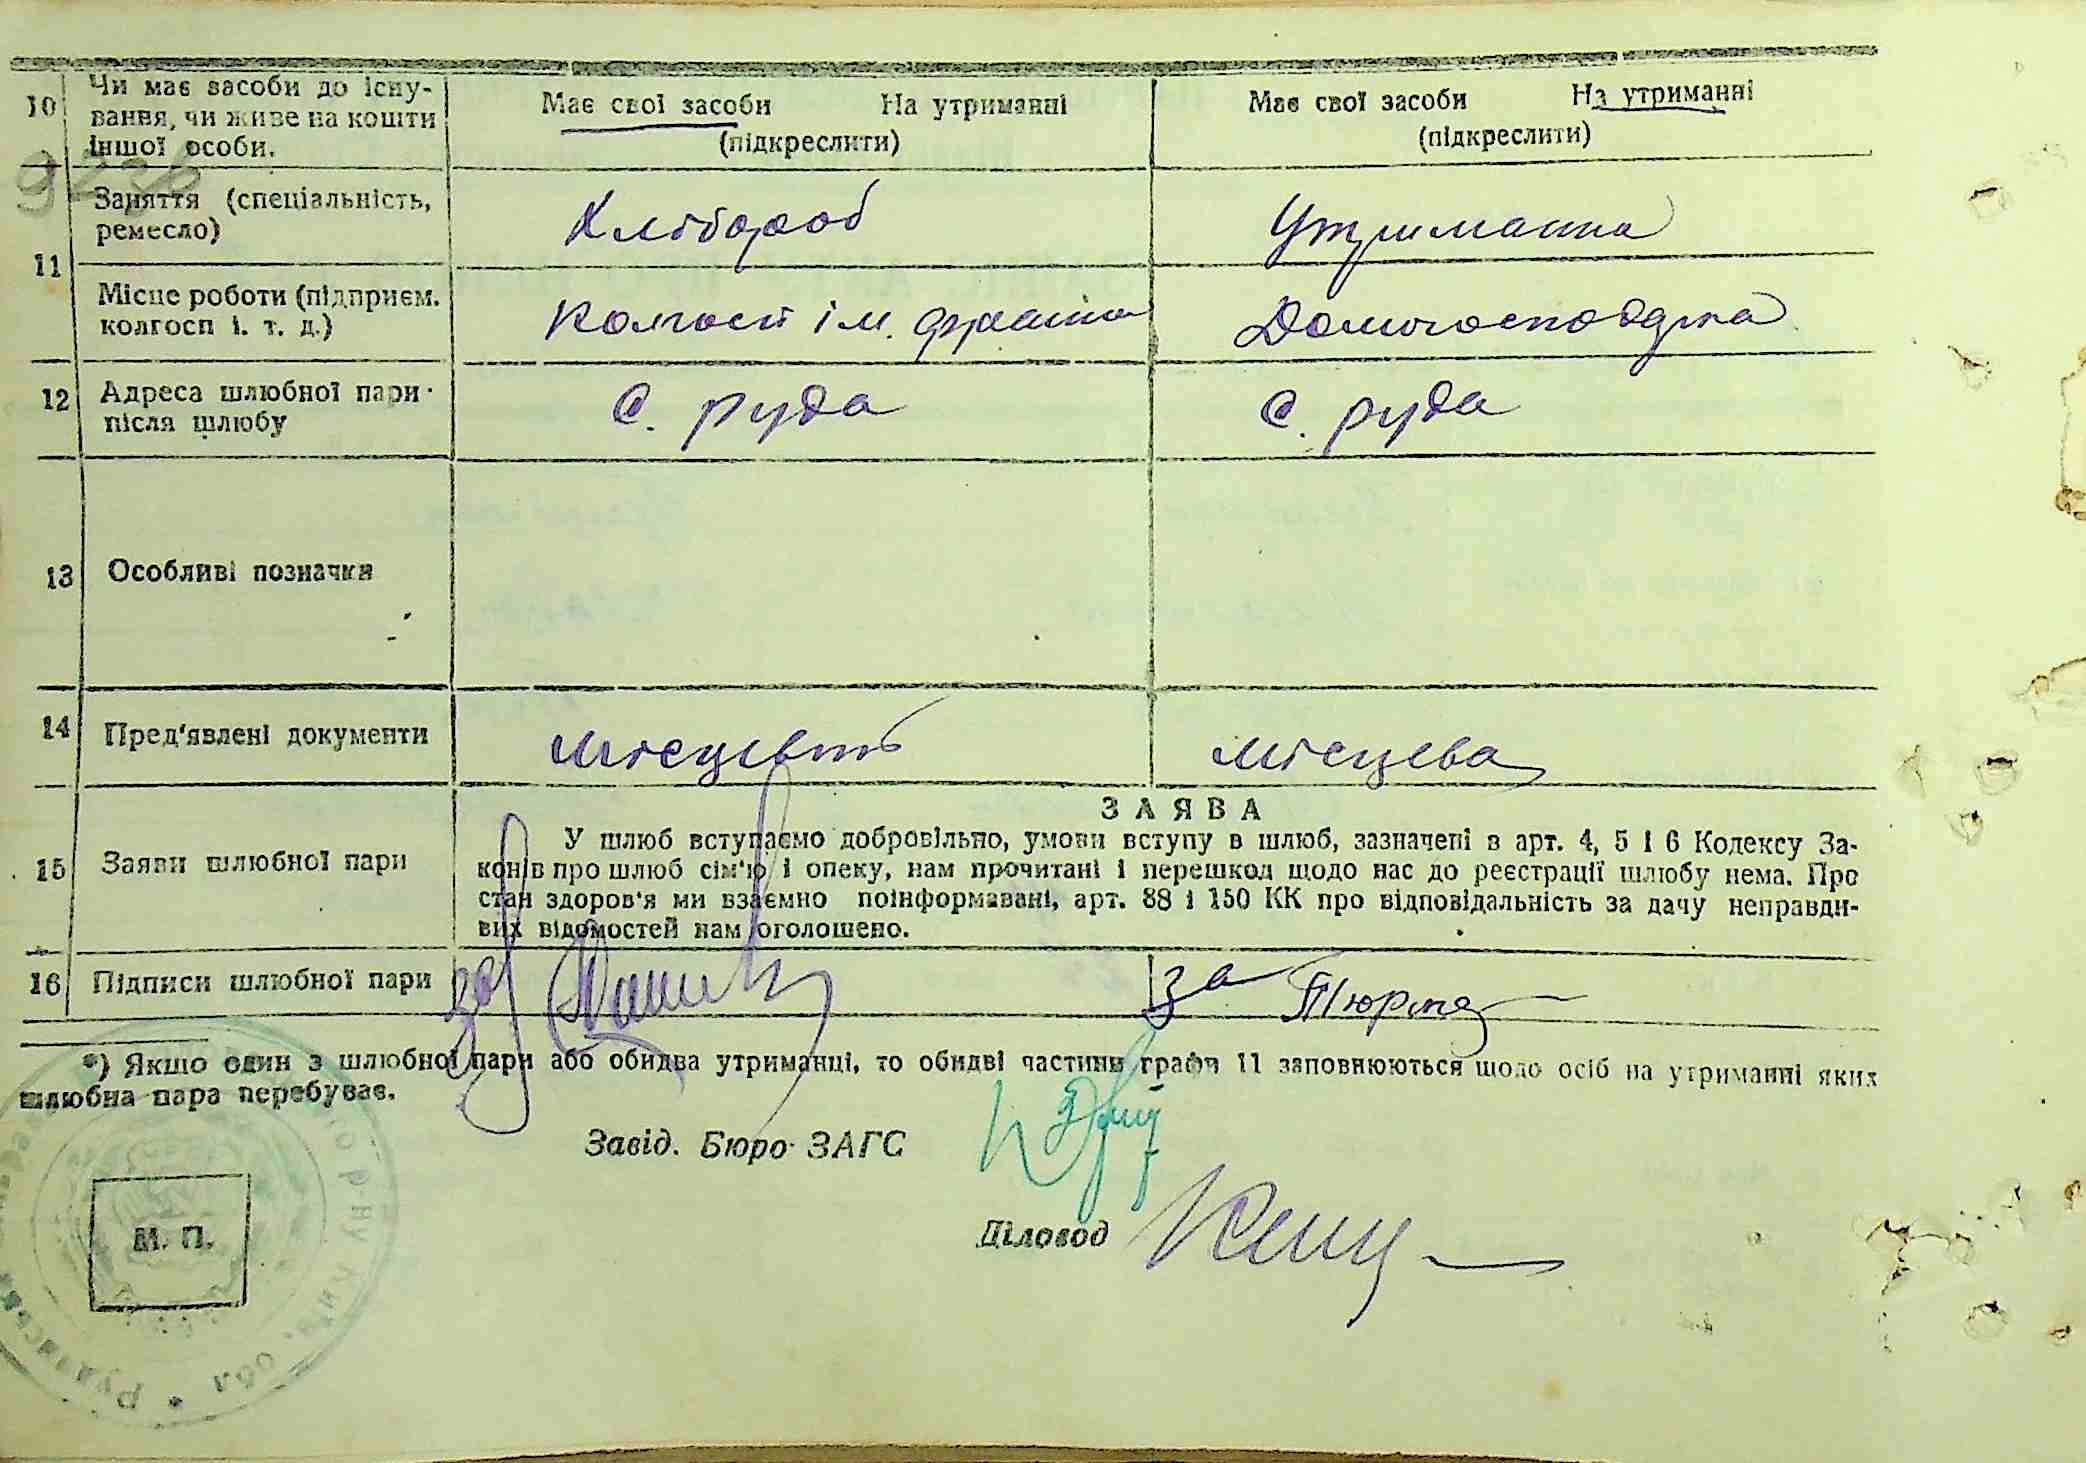 10 Чи має засоби до існу-
вання, чи живе на кошти
іншої особи.
Має свої засоби На утриманні
(підкреслити)
Має свої засоби На утриманні
(підкреслити)
11 Заняття (спеціальність,
ремесло)
Хлібороб
Утриманка
Місце роботи (підприєм.
колгосп і. т. д.)
Колгосп ім.
Домогосподрка
12 Адреса шлюбної пари
після шлюбу
с. руда
с. руда
13 Особливі позначки
14 Пред'явлені документи
місцевий
місцева
15 Заяви шлюбної пари
ЗАЯВА
У шлюб вступаємо добровільно, умови вступу в шлюб, зазначені в арт. 4, 5 і 6 Кодексу За-
конів про шлюб сім'ю і опеку, нам прочитані і перешкод щодо нас до реєстрації шлюбу нема. Про
стан здоров'я ми взаємно поінформавані, арт. 88 і 150 КК про відповідальність за дачу неправди-
вих відомостей нам оголошено.
16 Підписи шлюбної пари
за
*) Якщо один з шлюбної пари або обидва утриманці, то обидві частини графи 11 заповнюються щодо осіб на утриманні яких
шлюбна пара перебуває.
Завід. Бюро ЗАГС
Діловод
М. П.